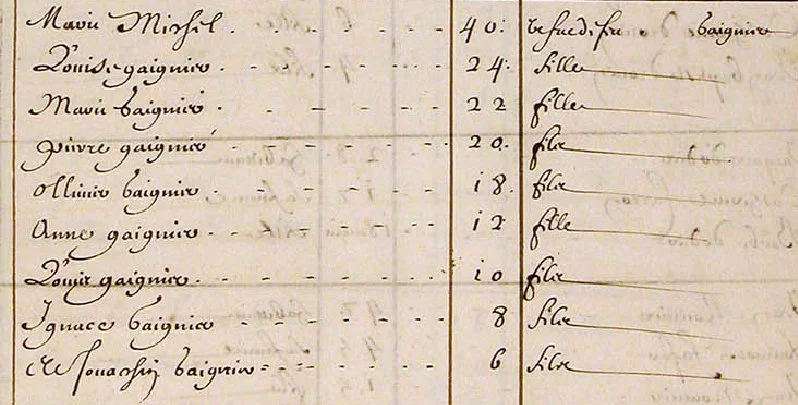 Marie Michel 40. vefue de feu gaignier
Louise gaignier 24. fille
Marie gaignier 22 fille
pierre gaignier 20. filz
Ollivier gaignier 18. filz
Anne gaignier 12 fille
Louis gaignier 10 filz
Ignace gaignier 8 filz
Et Jouachin gaignier 6 filz